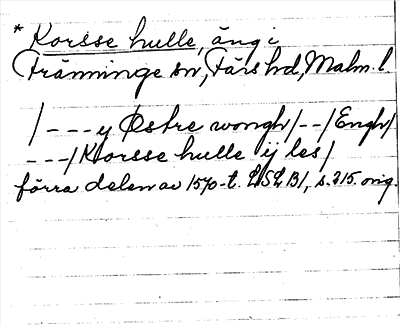 * Korsse hulle, äng i
Träminge sn, Färs hd, Malm. l.
/ - - - y Østre wongh / - - / Engh /
- - - / Korsse hulle ij les /
förra delen av 1570-t. LSLB1, s. 215. orig.